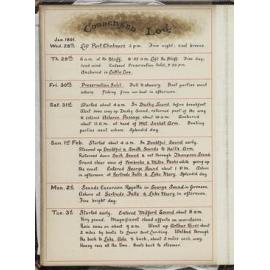 Condensed Log.
Jan. 1881.
Wed. 26th. Left Port Chalmers 3 p.m. Fine night, cool breeze.
Th. 27th. 6 a.m. at the Bluff. 9.25 a.m. left the Bluff. Fine day,
head wind. Entered Preservation Inlet, 8.30 p.m.
Anchored in Cuttle Cove.
Fri. Preservation Inlet. Dull & showery. Boat parties went
Fishing from on board in afternoon.
Sat. Started about 4 a.m. In Dusky Sound, before breakfast
Went some way up Dusky Sound, returned part of the way
& entered Acheron Passage about 10 a.m. Anchored
about 11 a.m. at head of Wet Jacket Arm. Boating
parties went ashore. Splendid day.
Started about 4 a.m. In Doubtful Sound early.
Steamed up Doubtful & Smith Sounds to Hall's Arm.
Returned down Smith Sound & out through Thompson Sound
Grand view of Pembroke & Tutoko Peaks while going up
the coast. Entered George Sound about 1 p.m. Ashore
in afternoon at Gertrude Falls & Lake Mary. Splendid day.
Sounds Excursion Regatta in George Sound in forenoon
Ashore at Gertrude Falls & Lake Mary in afternoon.
Fine bright day.
Started early. Entered Milford Sound about 8 a.m.
Very grand. Magnificent cloud effects on mountains.
Rain came on about 9 a.m. Went up Arthur River about
2 miles by boats to lower boat landing. Walked through
the bush to Lake Ada & back, about 3 miles each way.
Heavy rain all the time. Boats back to steamer.